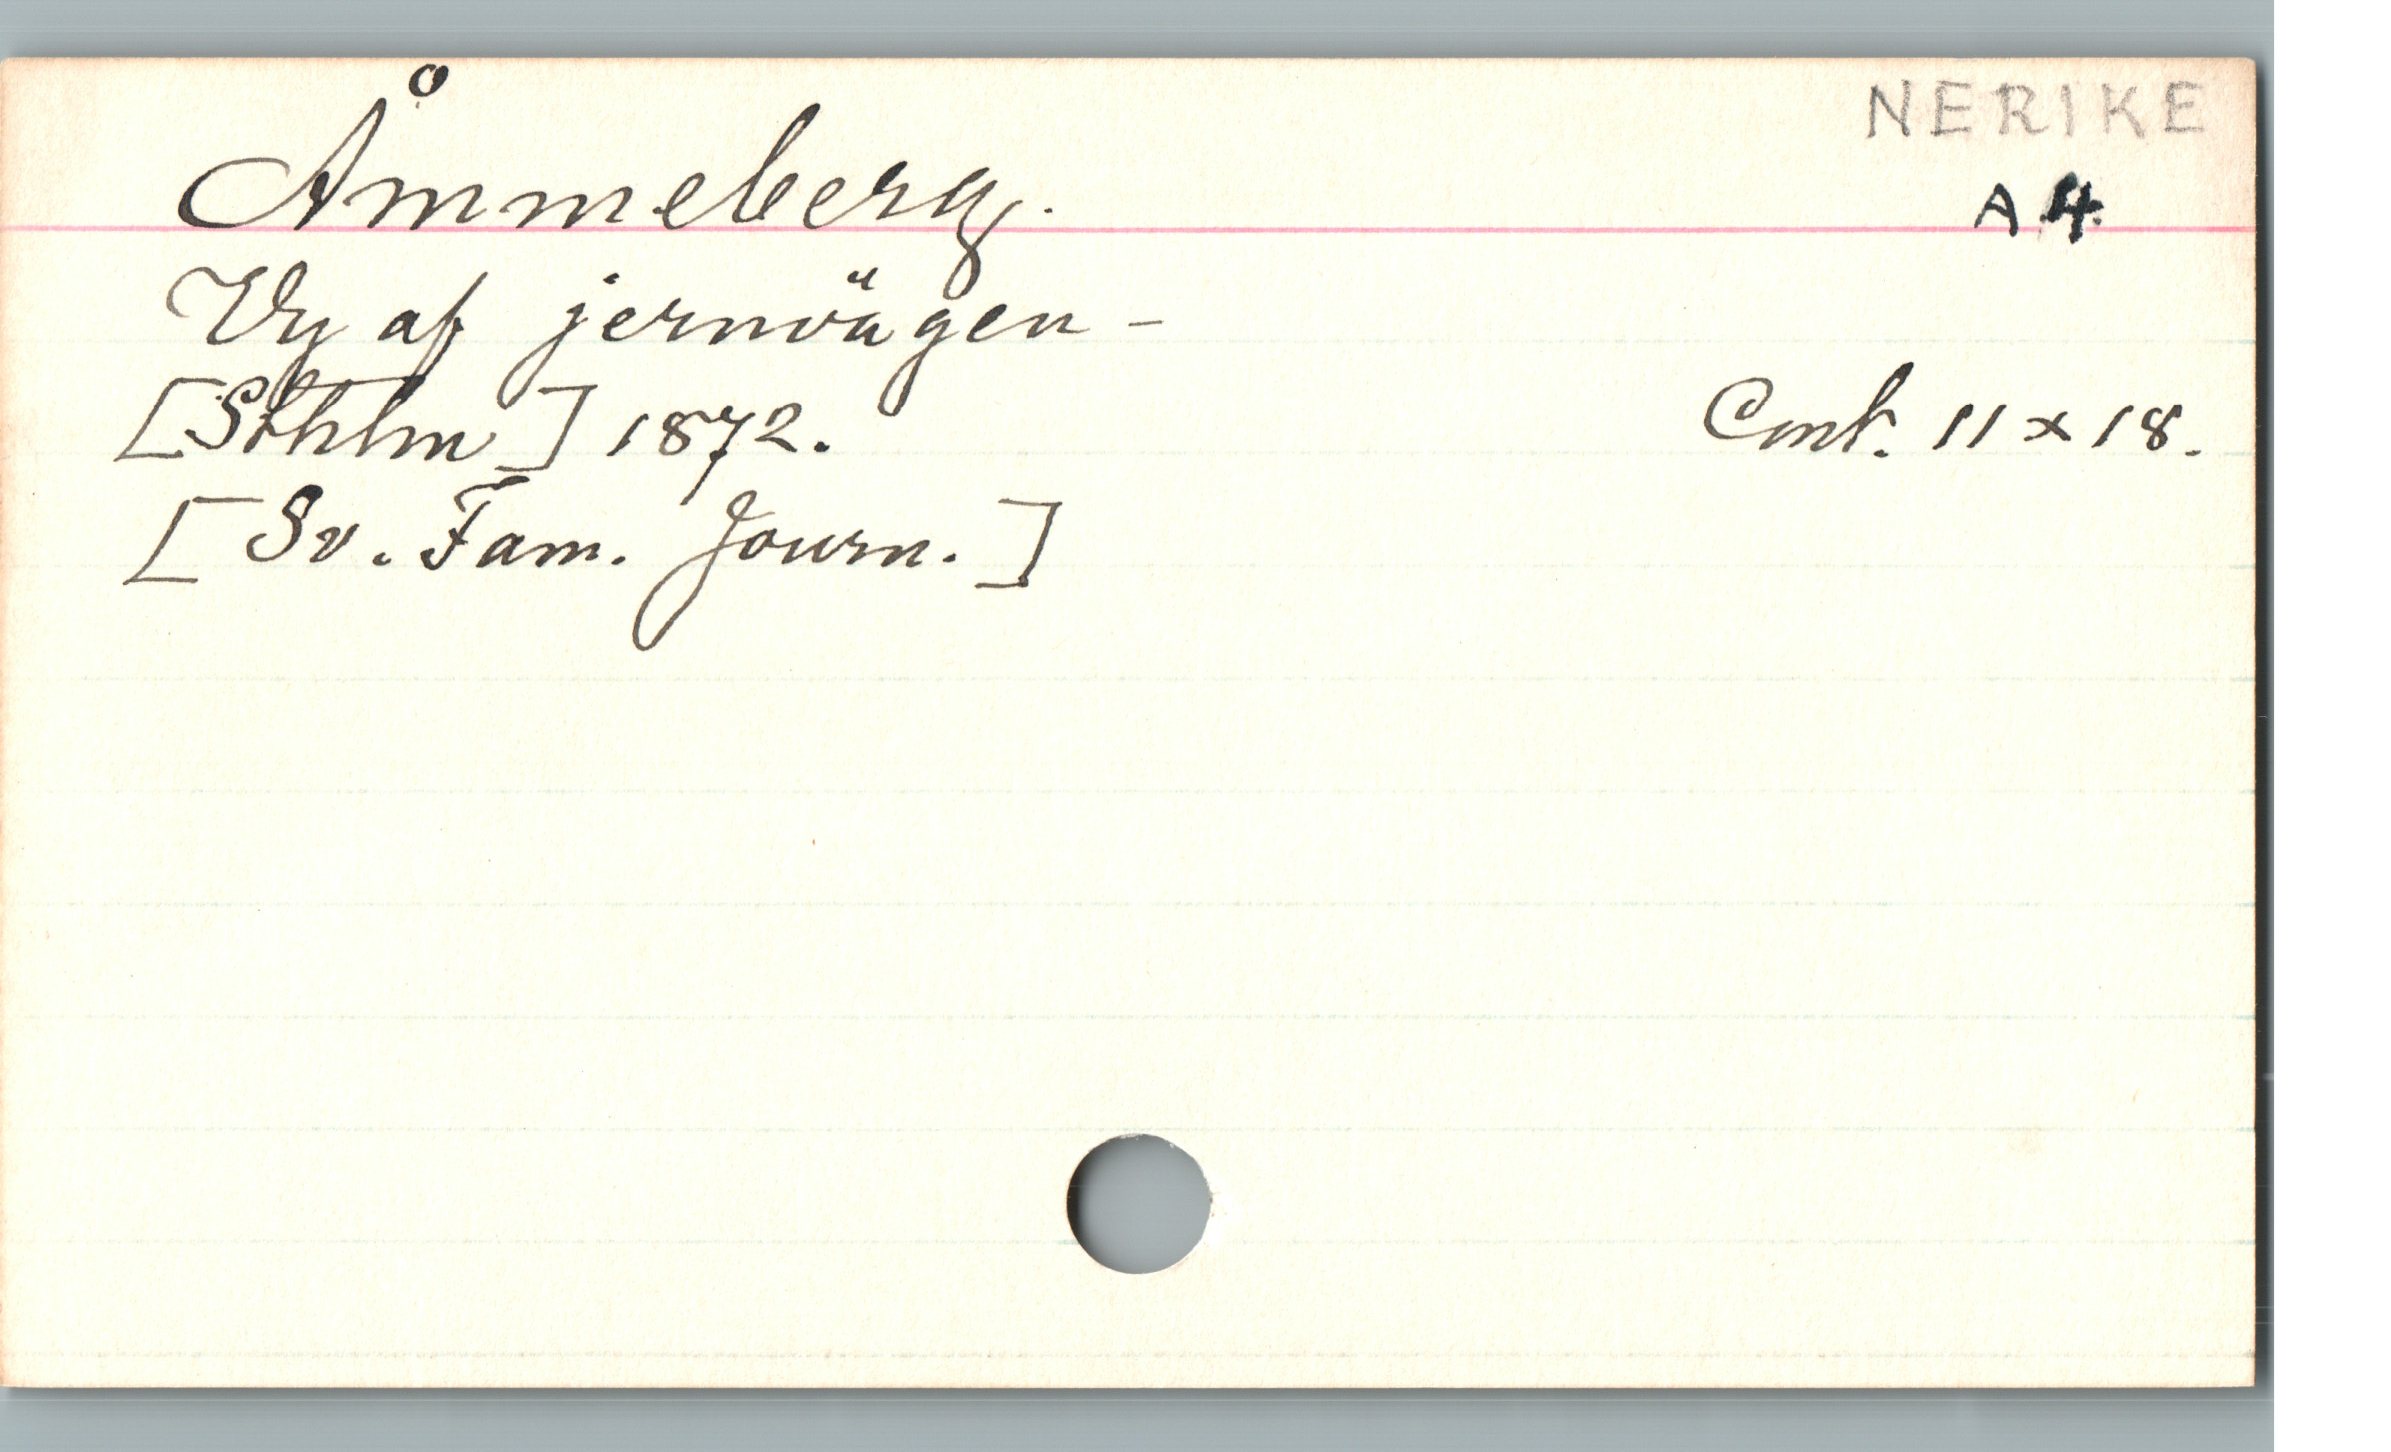 NERIKE
Åmmeberg.
A 4.
Vy af jernvägen -
[Sthlm] 1872.
Cmt. 11 x 18.
[Sv. Fam. Journ.]